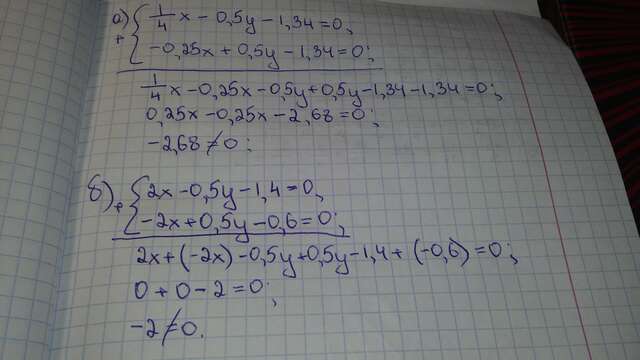 а) 1/4 x - 0,5y - 1,34 = 0,
+ -0,25x + 0,5y - 1,34 = 0;
1/4 x - 0,25x - 0,5y + 0,5y - 1,34 - 1,34 = 0;
0,25x - 0,25x - 2,68 = 0;
-2,68 ≠ 0;
б) 2x - 0,5y - 1,4 = 0,
+ -2x + 0,5y - 0,6 = 0;
2x + (-2x) - 0,5y + 0,5y - 1,4 + (-0,6) = 0;
0 + 0 - 2 = 0;
-2 ≠ 0.